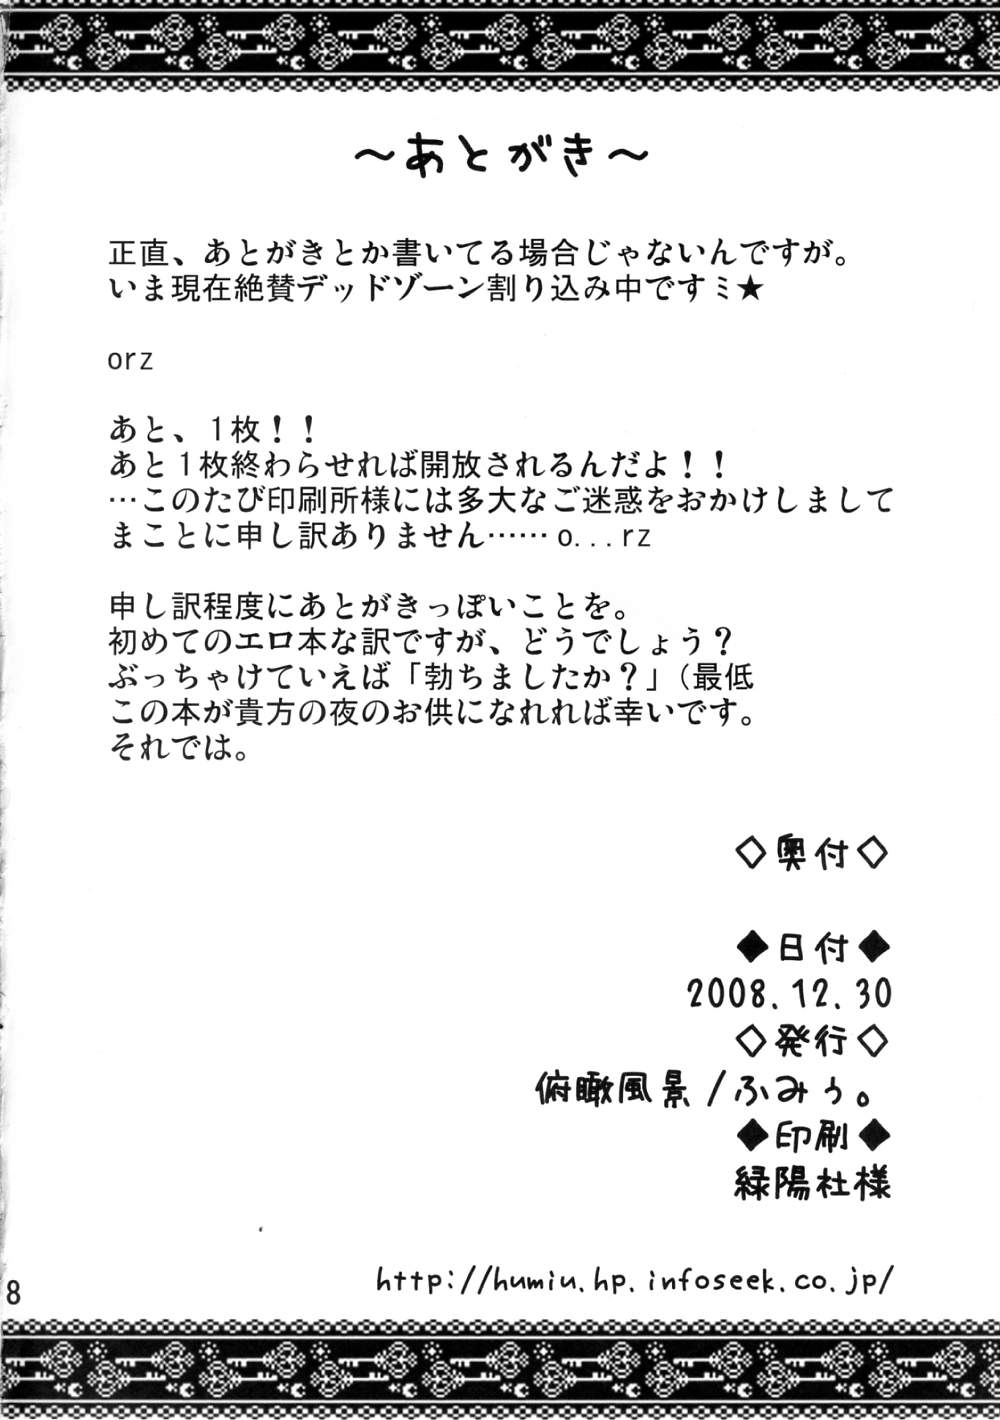 ～あとがき～
正直、あとがきとか書いてる場合じゃないんですが。
いま現在絶賛デッドゾーン割り込み中ですミ★
orz
あと、1枚！！
あと1枚終わらせれば開放されるんだよ！！
…このたび印刷所様には多大なご迷惑をおかけしまして
まことに申し訳ありません……o...rz
申し訳程度にあとがきっぽいことを。
初めてのエロ本な訳ですが、どうでしょう？
ぶっちゃけていえば「勃ちましたか？」（最低
この本が貴方の夜のお供になれれば幸いです。
それでは。
◇奥付◇
◆日付◆
2008.12.30
◇発行◇
俯瞰風景/ふみぅ。
◆印刷◆
緑陽社様
http://humiu.hp.infoseek.co.jp/
8